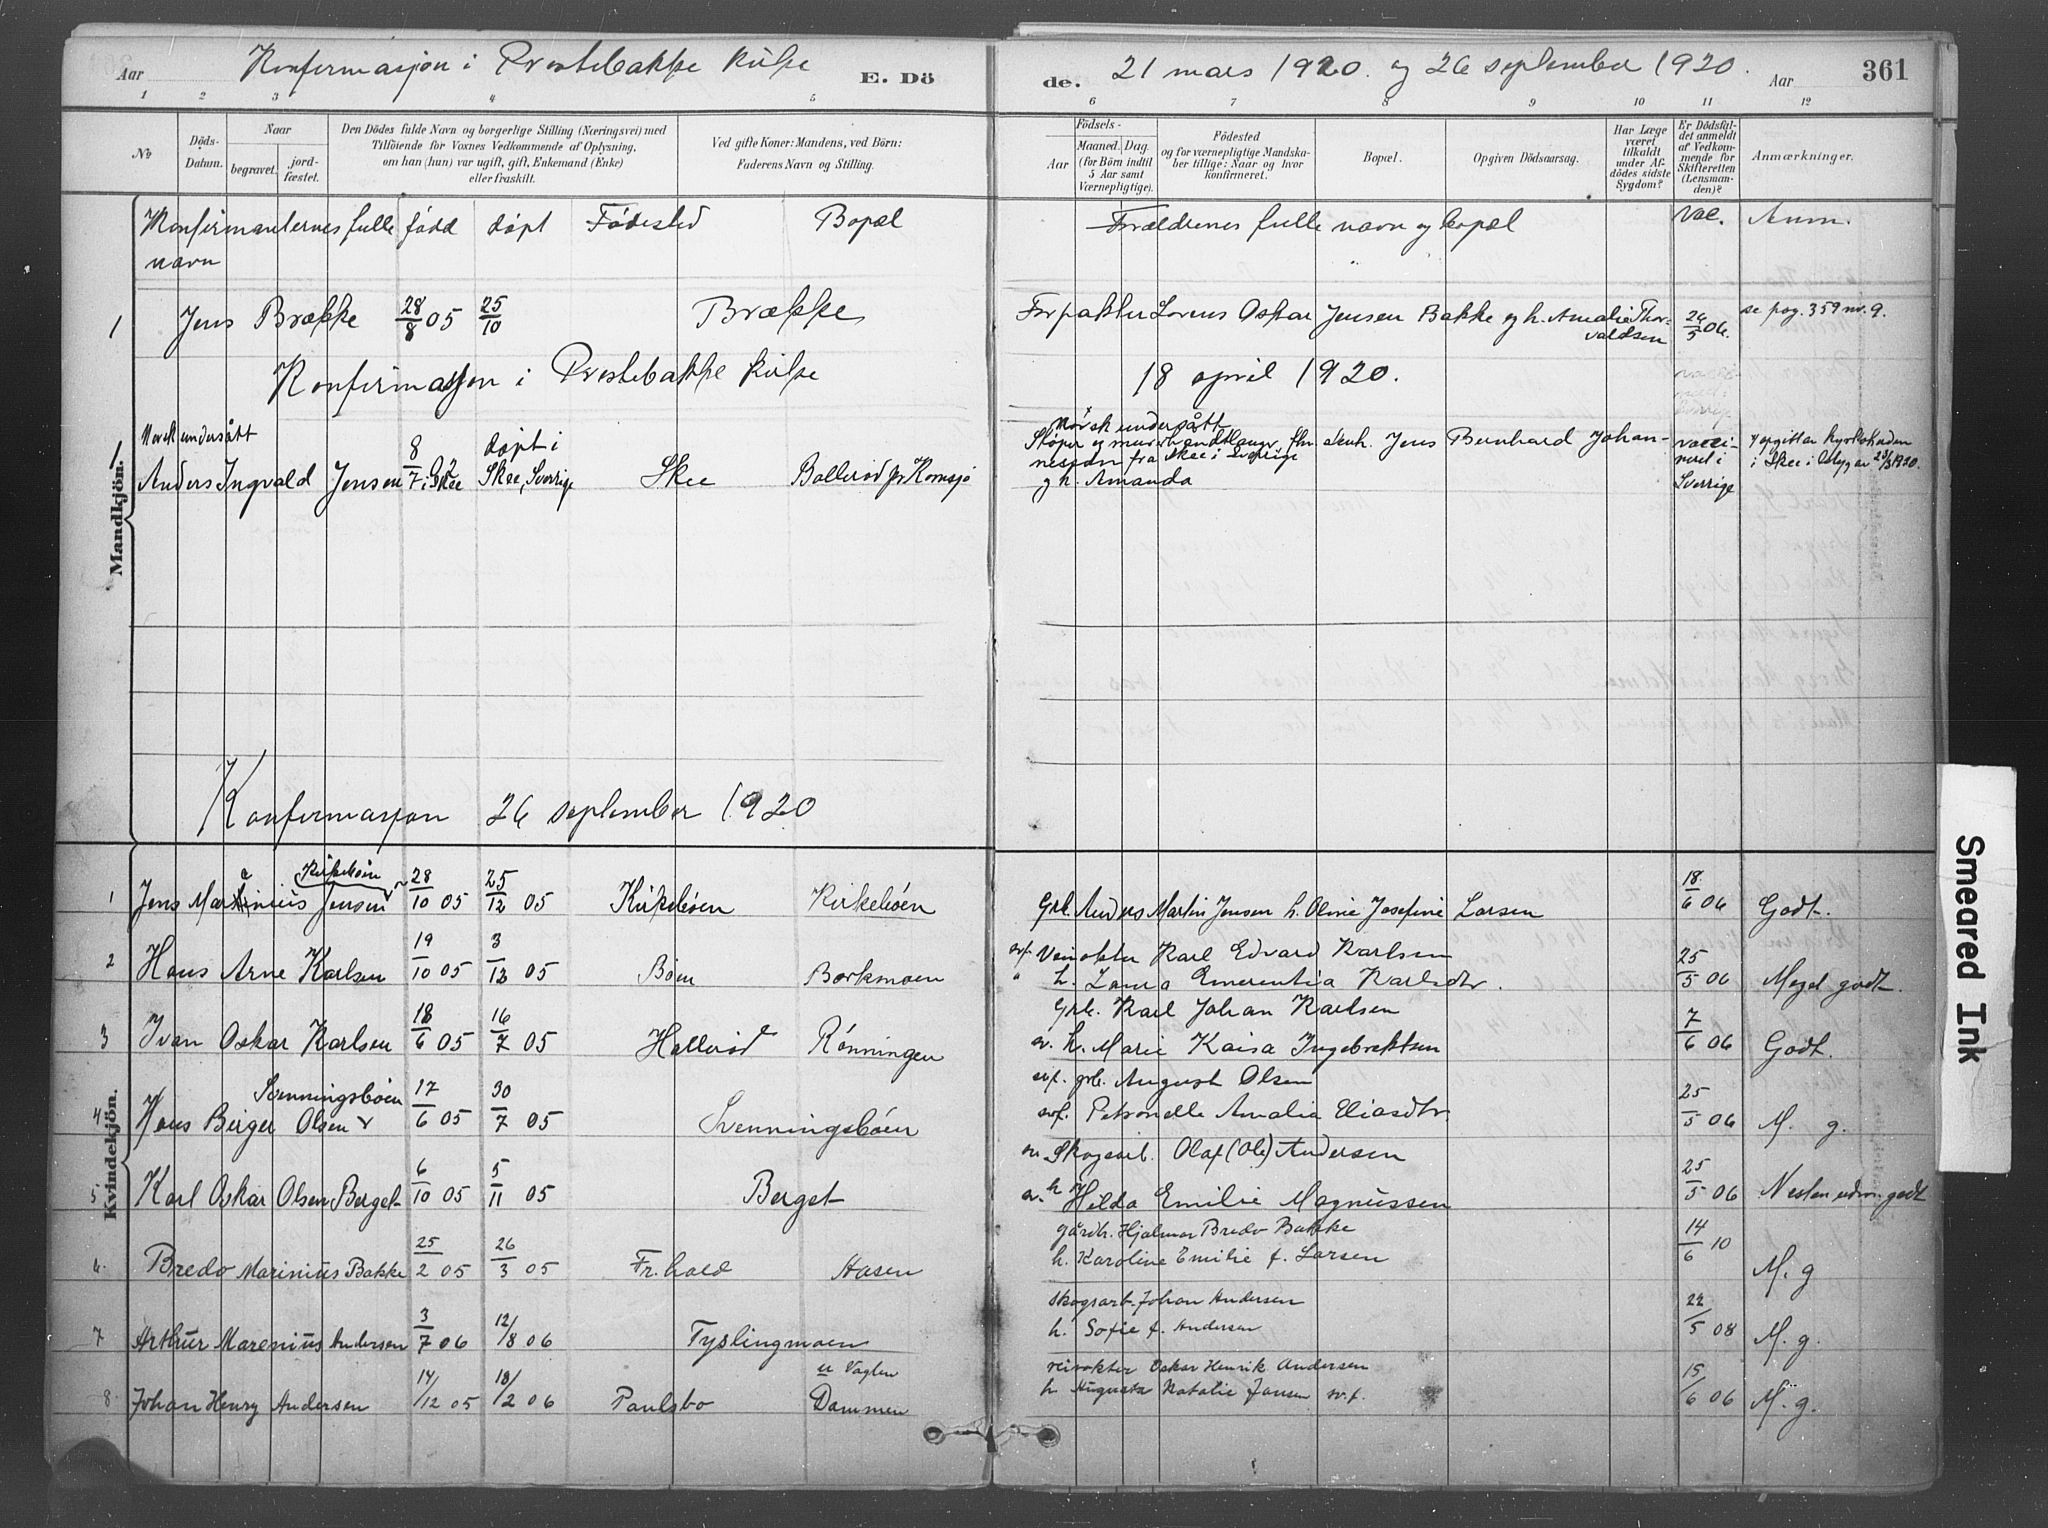 Konfermasjon i Prestebakke kirke 21 mars 1920. og 26 september 1920.
Aar E. Dö de. Aar 361
1 2 3 4 5 6 7 8 9 10 11 12
No
Döds-Datum.
Naar
begravet. jord-fæstet.
Den Dödes fulde Navn og borgerlige Stilling (Næringsvei) med
Tilföiende for Voxnes Vedkommende af Oplysning,
om han (hun) var ugift, gift, Enkemand (Enke)
eller fraskilt.
Ved gifte Koner: Mandens, ved Börn:
Faderens Navn og Stilling.
Födsels-
Aar Maaned, Dag.
(for Börn indtil
5 Aar samt
Værnepligtige).
Födested
og for værnepligtige Mandska-
ber tillige: Naar og hvor
konfirmeret.
Bopæl.
Opgiven Dödsaarsag.
Har Læge
været
tilkaldt
under Af-
dödes sidste
Sygdom?
Er Dödsfal-
det anmeldt
af Vedkom-
mende for
Skifteretten
(Lensman-
den)?
Anmærkninger.
Konfirmanternes fulle navn født døpt Fødested Bopæl Forældrenes fulle navn og bopæl Vac. Anm.
1 Jens Brække 28/8 05 25/10 Brække Forpakter Lorens Oskar Jensen Bakke og h. Amalie Thorvaldsen 26/5 06. se pag. 359 nr. 9.
Konfirmasjon i Prestebakke kirke 18 april 1920.
Mandkjön.
Norsk undersått
1 Anders Ingvald Jensen 8/7 02 i Skee døpt i Skee, Sverrige Skee Bollerød pr Kornsjø
Norsk undersått
Støper og murerhandtlanger Jens Bernhard Johan-
nessøn fra Skee i Sverrige
og h. Amanda
vacci-
neret i
Sverrige
i Skee 23/3 1920.
Konfermasjon 26 september 1920
Kvindekjön.
1 Jens Marinius Jensen Kirkebøen 28/10 05 25/12 05 Kirkebøen Kirkebøen Grb. Anders Martin Jensen h. Oline Josefine Larsen 18/6 06 Godt.
2 Hans Arne Karlsen 19/10 05 3/12 05 Bøen Borkmoen
Veivokter Karl Edvard Karlsen
h. Laura Emerentia Karlsdtr. 25/5 06 Meget godt.
3 Ivan Oskar Karlsen 18/6 05 16/7 05 Hallerød Rønningen
Grb. Karl Johan Karlsen
h. Marie Kaisa Ingebrektsen 7/6 06 Godt.
4 Hans Birger Olsen Svenningsbøen 17/6 05 30/7 05 Svenningsbøen
svf. grb. August Olsen
svf. Petronelle Amalie Eliasdtr. 25/5 06 M. g.
5 Karl Oskar Olsen Berget 6/10 05 5/11 05 Berget
Skogsarb. Olaf (Ole) Andersen
h Hilda Emilie Magnussen 25/5 06 Nesten udm. godt
6. Bredo Marinius Bakke 25/2 05 26/3 05 Fr. hald Aasen
gårdbr. Hjalmar Bredo Bakke
h. Karoline Emilie f. Larsen 14/6 10 M. g
7 Arthur Marenius Andersen 3/7 06 12/8 06 Tyslingmoen
skogsarb. Johan Andersen
h. Sofie f. Andersen 22/5 08 M. g.
8 Johan Henry Andersen 14/12 05 18/2 06 Paulsbo Dammen
veivokter Oskar Henrik Andersen
h Augusta Natalie Jansen sv.f. 15/6 06 M. g.
Smeared Ink